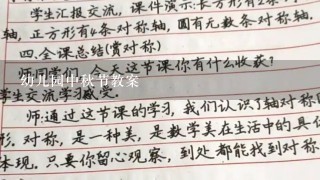 学生汇报交流,课件演示:长方形有2条
轴,正方形有4条对称轴,圆有无数条对称轴.
四.全课总结(赏对称)
今天这节课你有什么收获?
幼儿园中秋节教案
学生交流学习
师:通过这节课的学习,我们认识了轴对称
形.对称,是一种美,是数学美在生活中的具
体现.只要你留心观察,到处都能找到对称